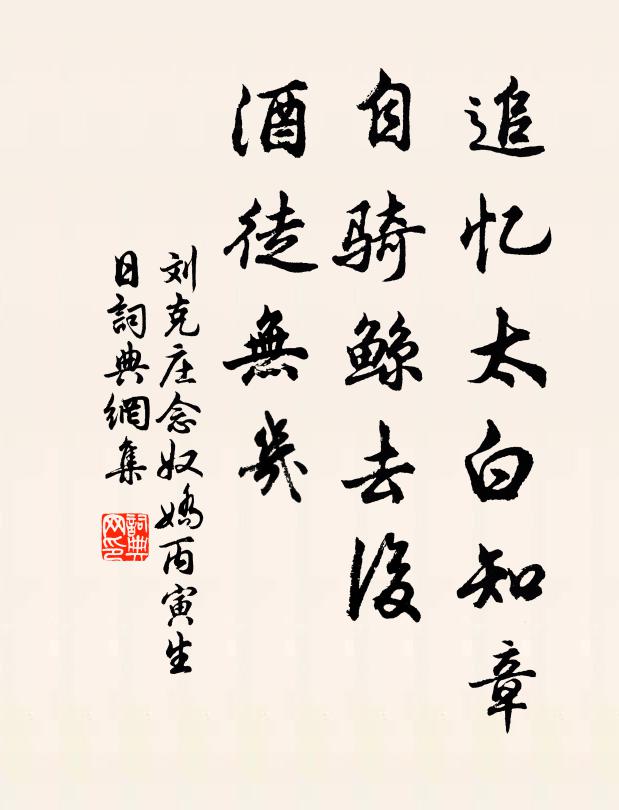 追忆太白知章
自骑鲸去後
酒徒無幾
刘克庄念奴嬌丙寅生
日詞典網集
詞典
网印